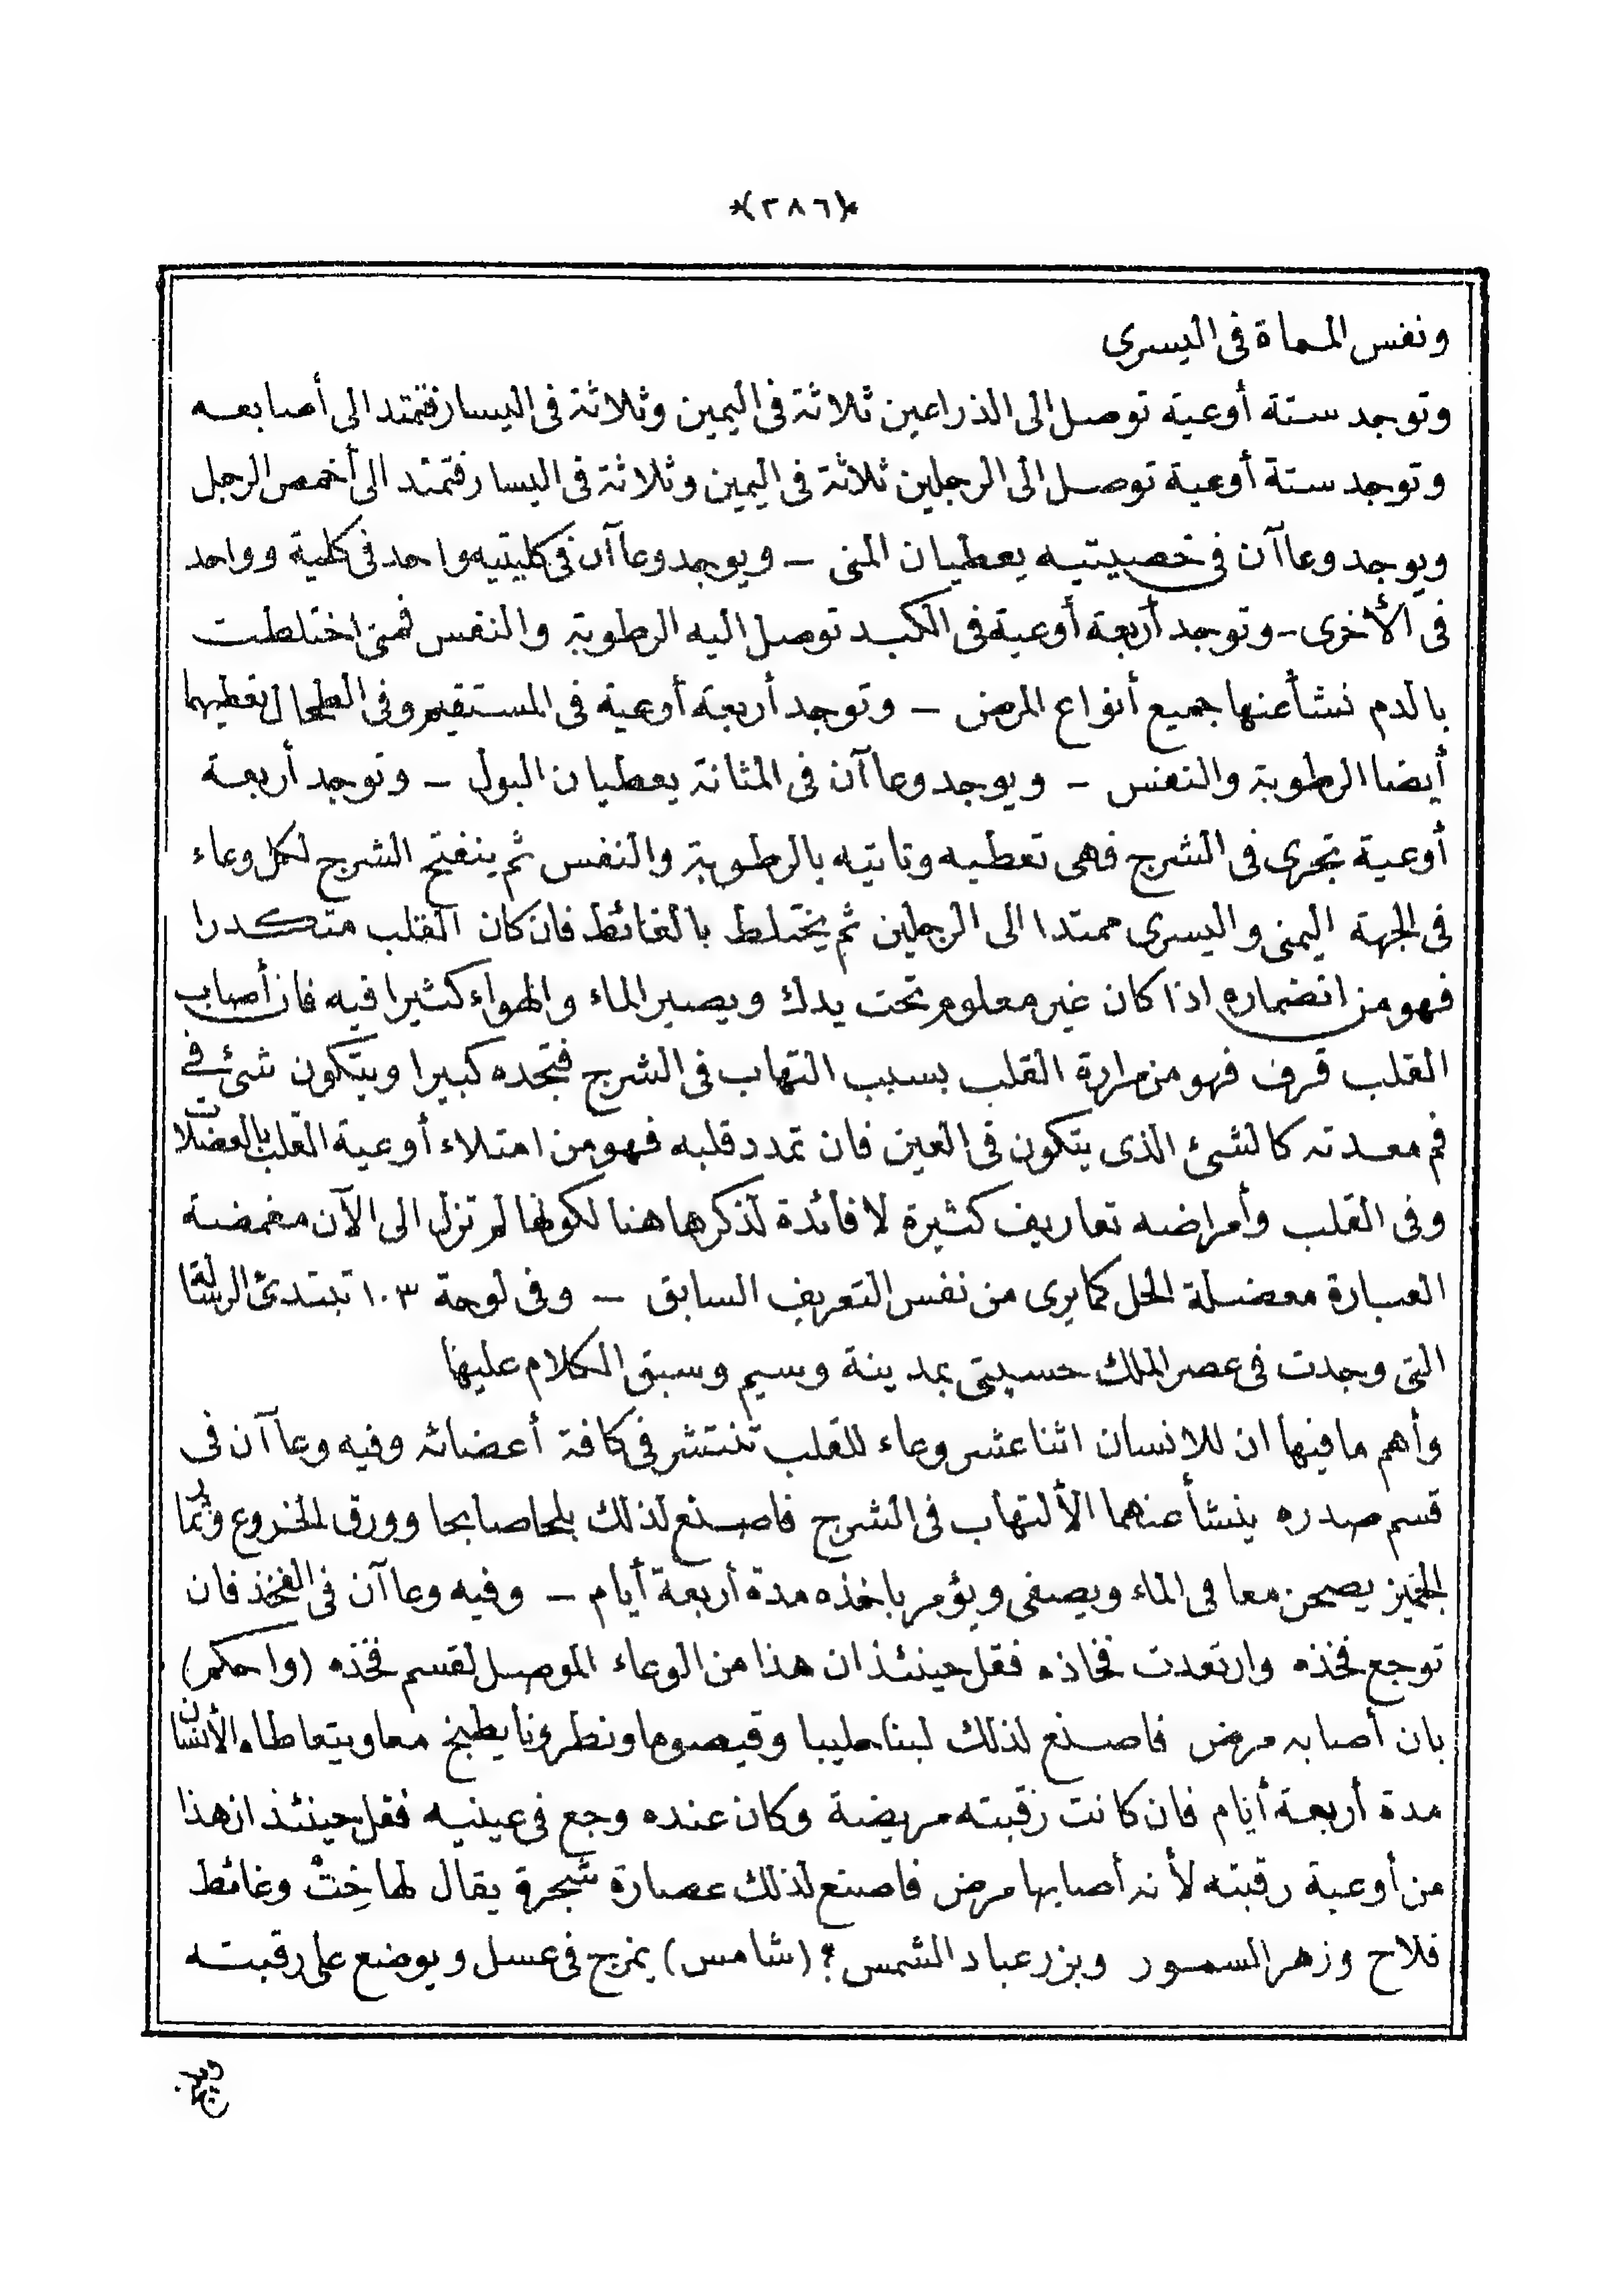 *(٢٨٦)*
ونفس المماة فى اليسرى
وتوجد ستة أوعية توصل الى الذراعين ثلاثة فى اليمين وثلاثة فى اليسار فتمتد الى أصابعه
وتوجد ستة أوعية توصل الى الرجلين ثلاثة فى اليمين وثلاثة فى اليسار فتمتد الى أخمص الرجل
ويوجد وعاآن فى خصيتيه يعطيان المنى – ويوجد وعاآن فى كليتيه واحد فى كلية وواحد
فى الأخرى – وتوجد أربعة أوعية فى الكبد توصل اليه الرطوبة والنفس فمتى اختلطت
بالدم نشأ عنها جميع أنواع المرض – وتوجد أربعة أوعية فى المستقيم وفى الطحال تعطيهما
أيضا الرطوبة والنفس – ويوجد وعاآن فى المثانة يعطيان البول – وتوجد أربعة
أوعية تجرى فى الشرج فهى تعطيه وتاتيه بالرطوبة والنفس ثم ينفتح الشرج لكل وعاء
فى الجهة اليمنى واليسرى ممتدا الى الرجلين ثم يختلط بالغائط فان كان القلب متكدرا
فهو من انضماره اذا كان غير معلوم تحت يدك ويصير الماء والهواء كثيرا فيه فان أصاب
القلب قرف فهو من مرارة القلب بسبب التهاب فى الشرج فتجده كبيرا ويتكون شئ فى
فم معدته كالشئ الذى يتكون فى العين فان تمدد قلبه فهو من امتلاء أوعية القلب بالعضلات
وفى القلب وأمراضه تعاريف كثيرة لا فائدة لذكرها هنا لكونها لم تزل الى الآن مغمضة
العبارة معضلة الحل كما يرى من نفس التعريف السابق – وفى لوحة ١٠٣ تبتدئ الرسالة
التى وجدت فى عصر الملك حسپتى بمدينة وسيم وسبق الكلام عليها
وأهم ما فيها ان للانسان اثنا عشر وعاء للقلب تنتشر فى كافة أعضائه وفيه وعاآن فى
قسم صدره ينشأ عنهما الألتهاب فى الشرج فاصنع لذلك بلحا صابحا وورق الخروع وثمار
الجميز يصحن معا فى الماء ويصفى ويؤمر باخذه مدة أربعة أيام – وفيه وعاآن فى الفخذ فان
توجع فخذه وارتعدت فخاذه فقل حينئذ ان هذا من الوعاء الموصل لقسم فخذه (واحكم)
بان أصابه مرض فاصنع لذلك لبنا حليبا وقيصوما ونطرونا يطبخ معا ويتعاطاه الأنسان
مدة أربعة أيام فان كانت رقبته مريضة وكان عنده وجع فى عينيه فقل حينئذ ان هذا
من أوعية رقبته لأنه أصابها مرض فاصنع لذلك عصارة شجرة يقال لها خِتْ وغائط
فلاح وزهر السمور وبزر عباد الشمس؟ (شامس) يمزج فى عسل ويوضع على رقبته